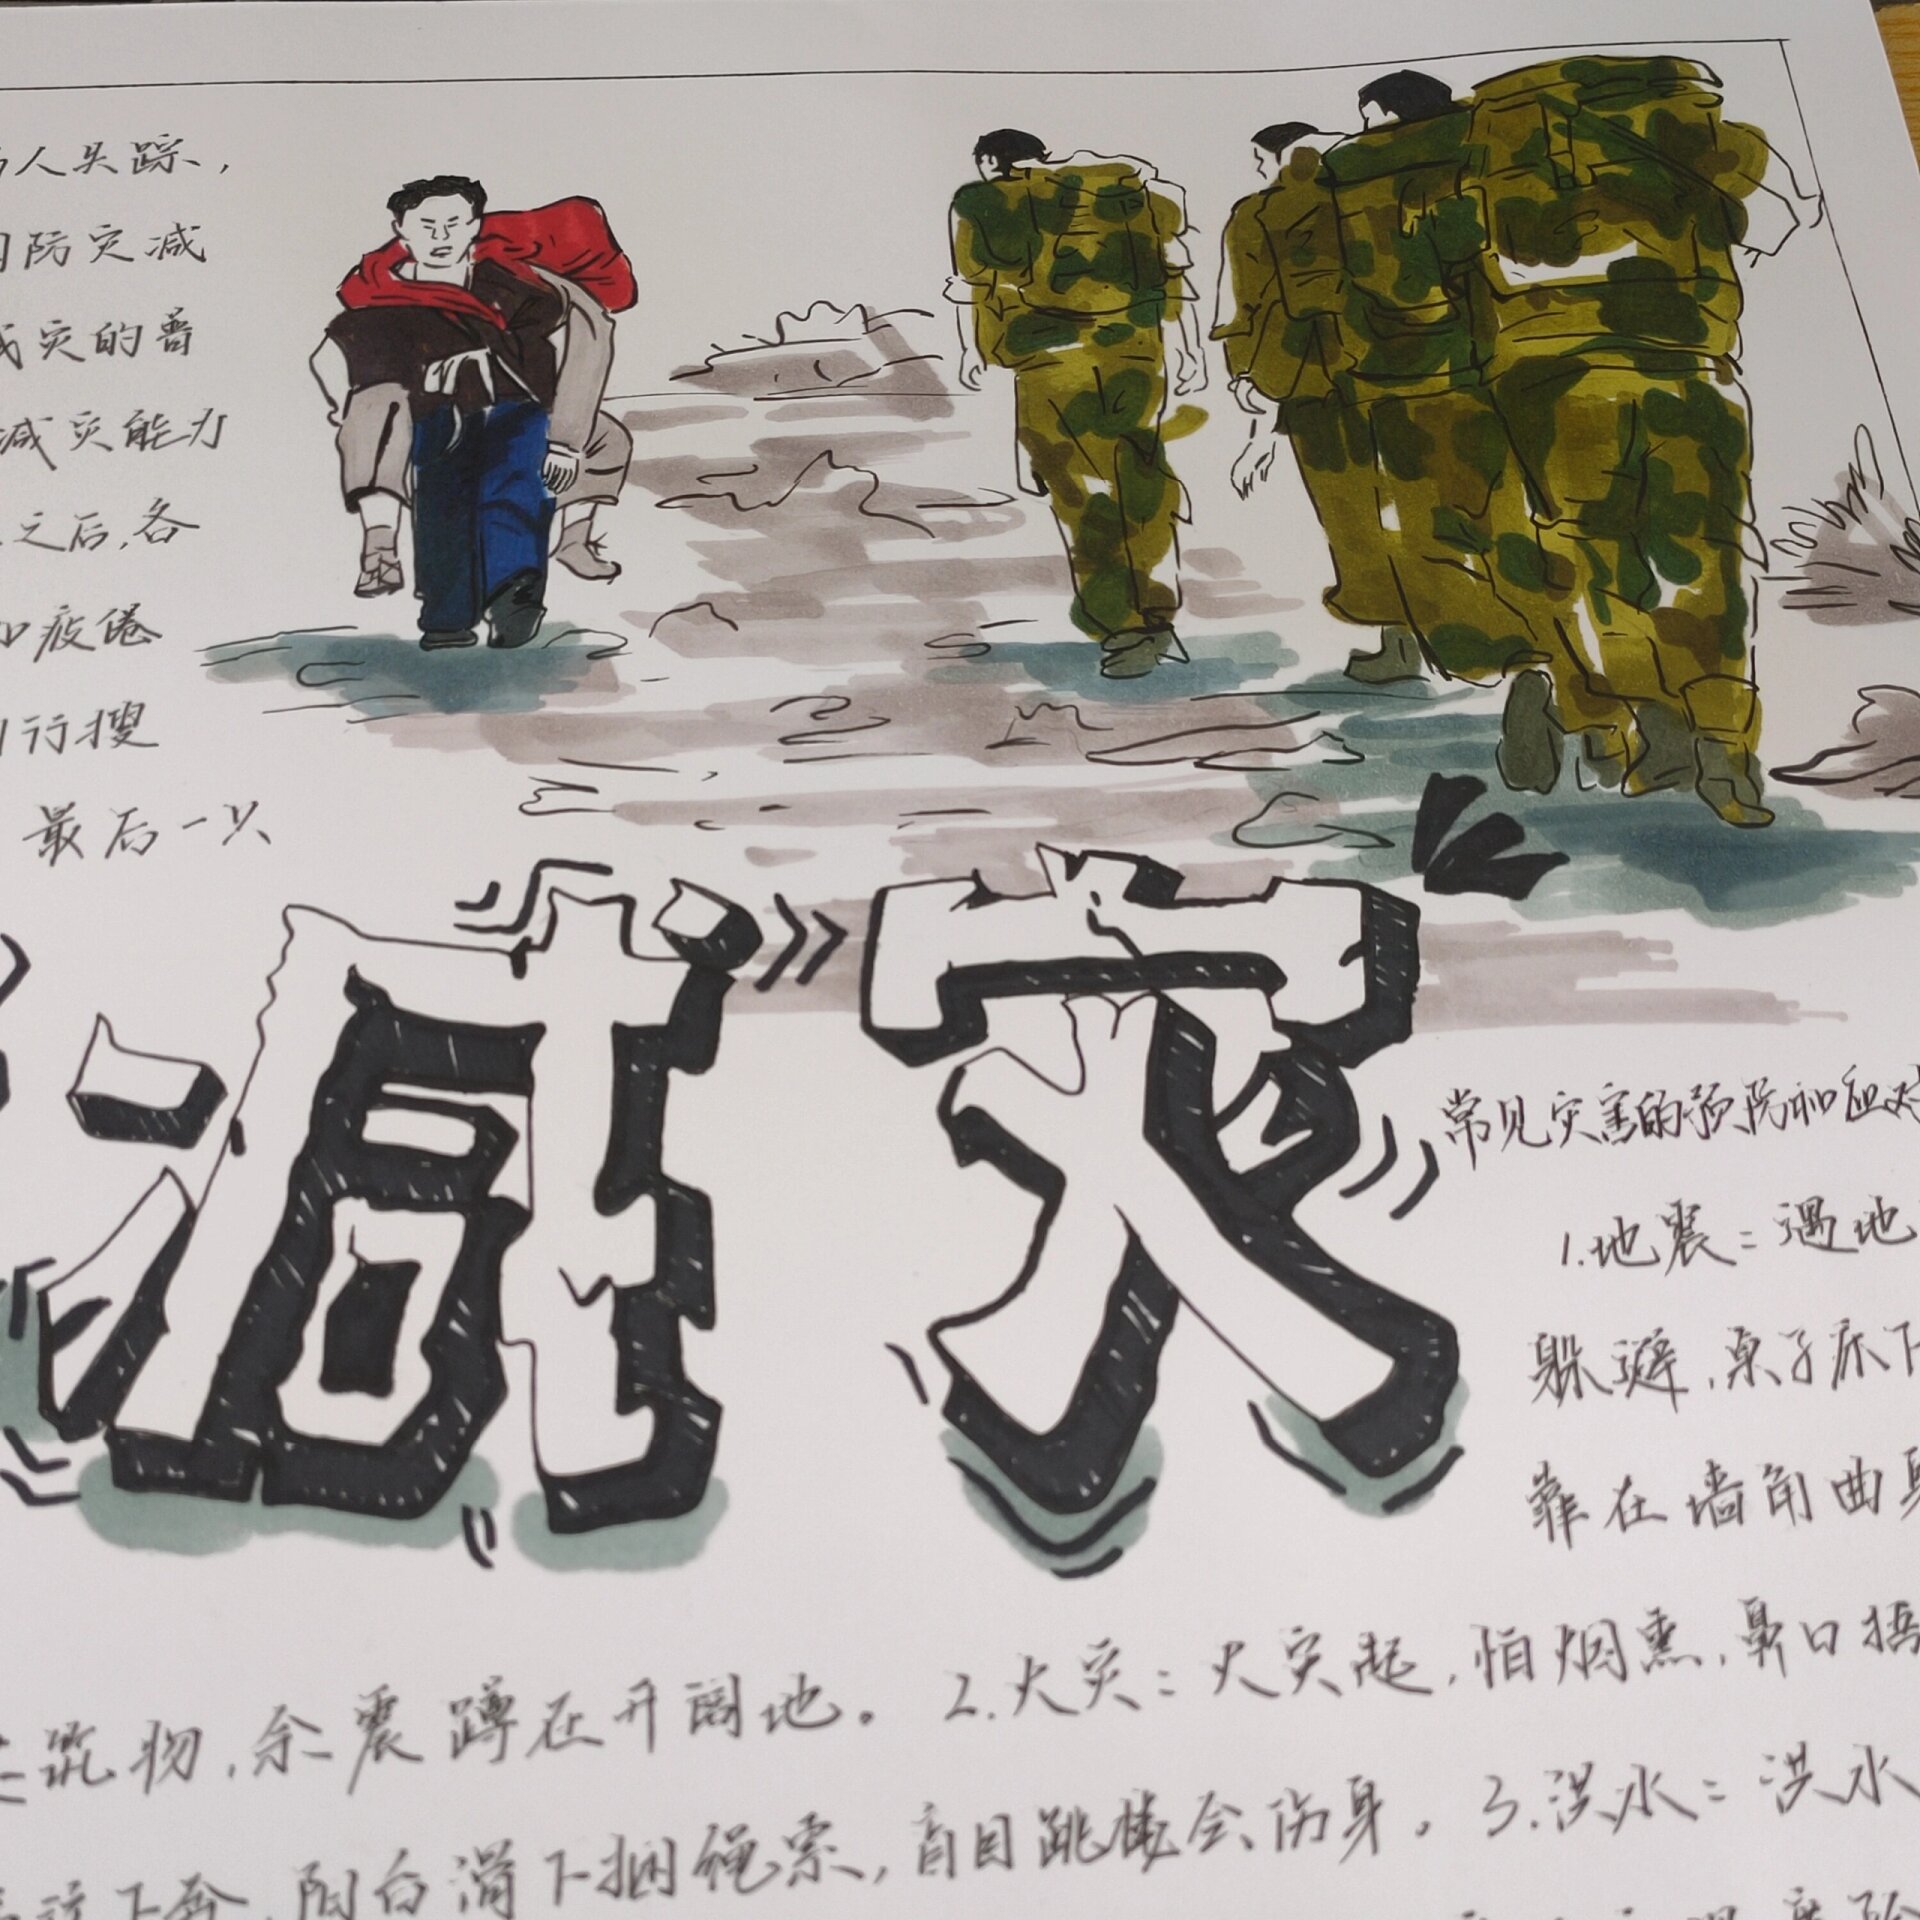 人失踪，
防灾减
灾的普
减灾能力
之后，各
疲倦
行搜
最后一次
减灾
常见灾害的预防和应对
1.地震：遇地
躲避，桌子床下
靠在墙角曲身
筑物，余震蹲在开阔地。2.火灾：火灾起，怕烟熏，鼻口捂
下奔，阳台滑下捆绳索，盲目跳楼会伤身。3.洪水：洪水